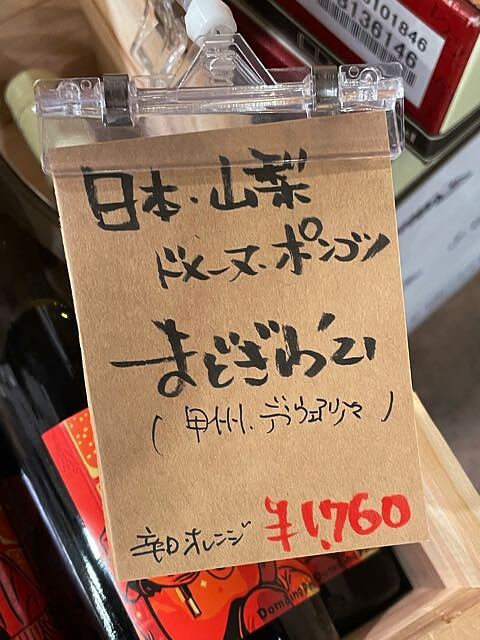 5101846
8136146
日本・山梨
ドメーヌ・ポンコツ
まどぎわ'21
(甲州、デラウェア)
辛口オレンジ ¥1,760